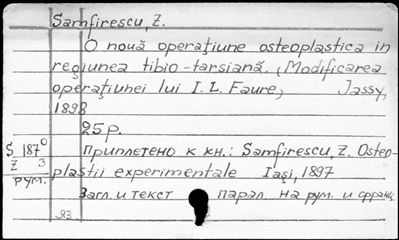 Samfirescu, Z.
O nouă operaţiune osteoplastica in
regiunea tibio-tarsiană. (Modificarea
operaţiunei lui I. L. Faure, Jassy,
1898
25 p.
S 187⁰
Z 3
РУМ.
Приплетено к кн.: Samfirescu, Z. Osteo-
plastii experimentale Iaşi, 1897
Загл. и текст парал. на рум. и франц.
93